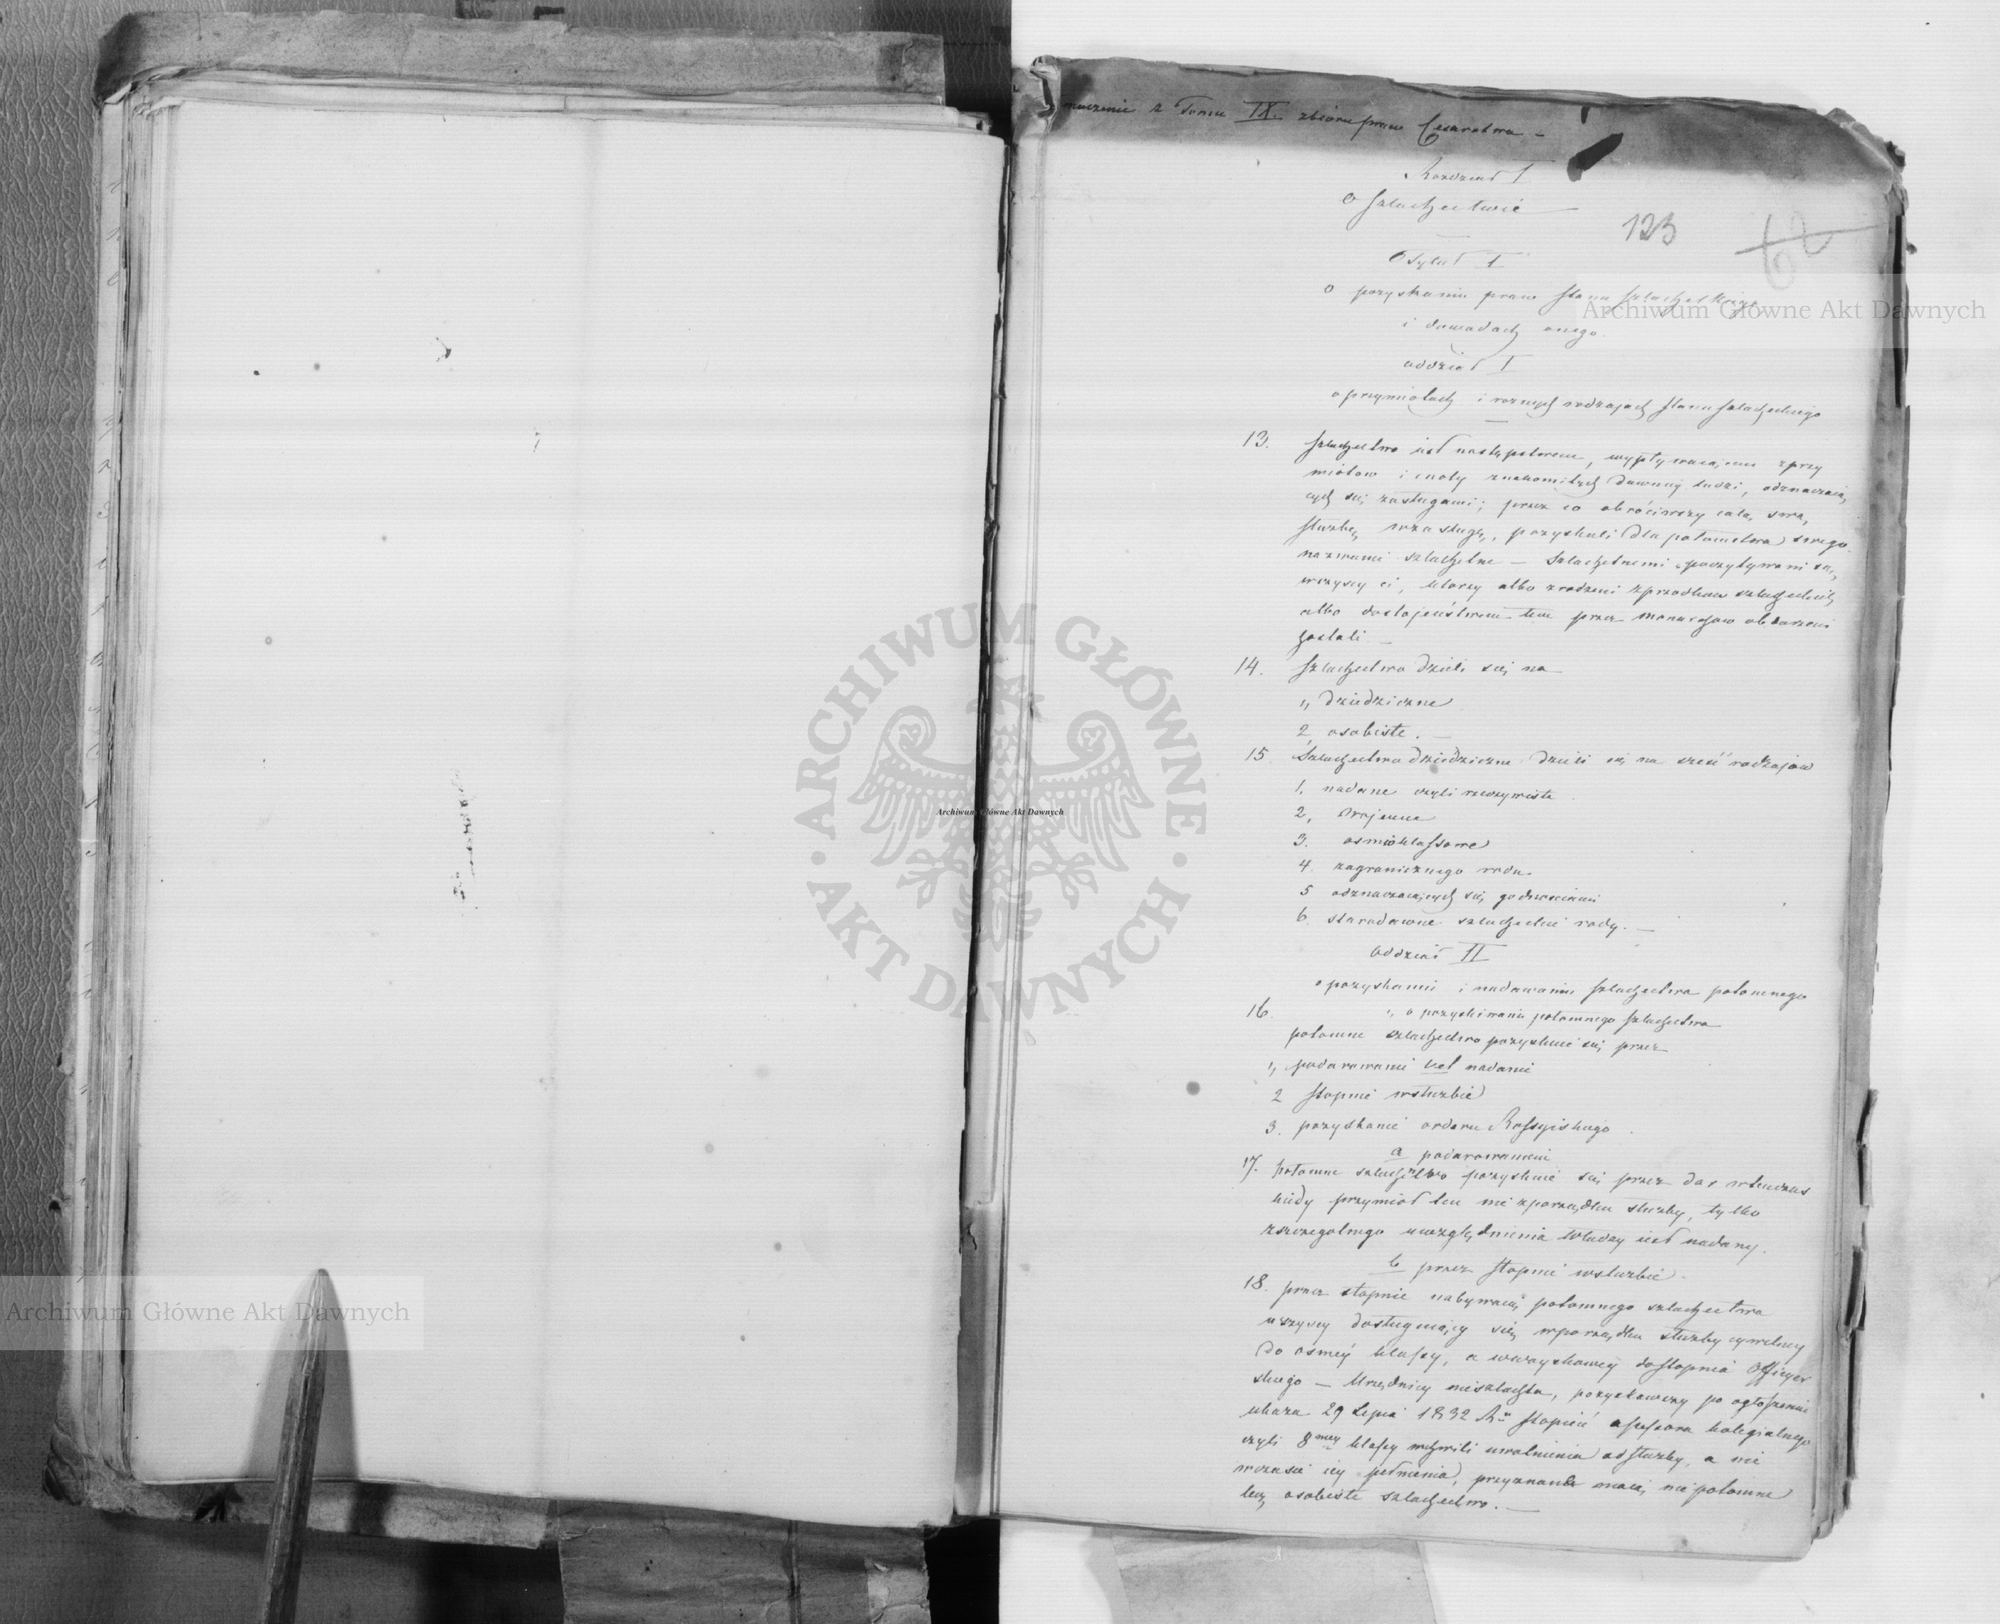 naczenie z Tomu IX. zbioru praw Cesarstwa –
Rozdział I
O szlachectwie
123
62
Tytuł I
o pozyskaniu praw stanu szlacheckiego
i dowodach onego.
oddział I
o przymiotach i roznych rodzajach stanu szlacheckiego
13. Szlachectwo iest następstwem, wypływaiącem z przy
miotow i cnoty znakomitych dawniej ludzi, odznaczaią,
cych się zasługami; przez co obróciwszy całą swą,
służbę, w zasługę, pozyskali dla potomstwa swego
nazwanie szlachetne – Szlachetnemi poczytywani są,
wszyscy ci, ktorzy albo zrodzeni z przodkow szlacheckich,
albo dostojeństwem tem przez monarchow obdarzeni
zostali –
14. Szlachectwo dzieli się na
1, dziedziczne
2, osobiste. –
15. Szlachectwo dziedziczne dzieli się na sześć rodzajow
1, nadane czyli rzeczywiste.
2, wojenne
3. osmioklassowe
4. zagranicznego rodu
5 odznaczaiących się godnościami
6. starodawne szlacheckie rody. –
oddział II
o pozyskaniu i nadawaniu szlachectwa potomnego
16. 1, o pozyskiwaniu potomnego szlachectwa
potomne szlachectwo pozyskuie się przez
1, podarowanie vel nadanie
2 stopnie w służbie
3. pozyskanie orderu Rossyiskiego.
a podarowaniem
17. potomne szlachectwo pozyskuie się przez dar wtenczas
kiedy przymiot ten nie z porządku służby, tylko
z szczegolnego uwzględnienia Władzy iest nadany.
b przez stopnie w służbie.
18. przez stopnie nabywaią potomnego szlachectwa
wszyscy dosługuiący się w porządku służby cywilney
do osmey klassy, a w woyskowey do stopnia Officyer
skiego – Urzędnicy nieszlachta, pozyskawszy po ogłoszeniu
ukazu 29 Lipca 1832 Ru stopień assessora kolegialnego
czyli 8mey klassy w chwili uwolnienia od służby, a nie
w czasie iey pełnienia, przyznane maią nie potomne
lecz osobiste szlachectwo. –
Archiwum Główne Akt Dawnych
Archiwum Główne Akt Dawnych
Archiwum Główne Akt Dawnych
ARCHIWUM GŁÓWNE · AKT DAWNYCH ·